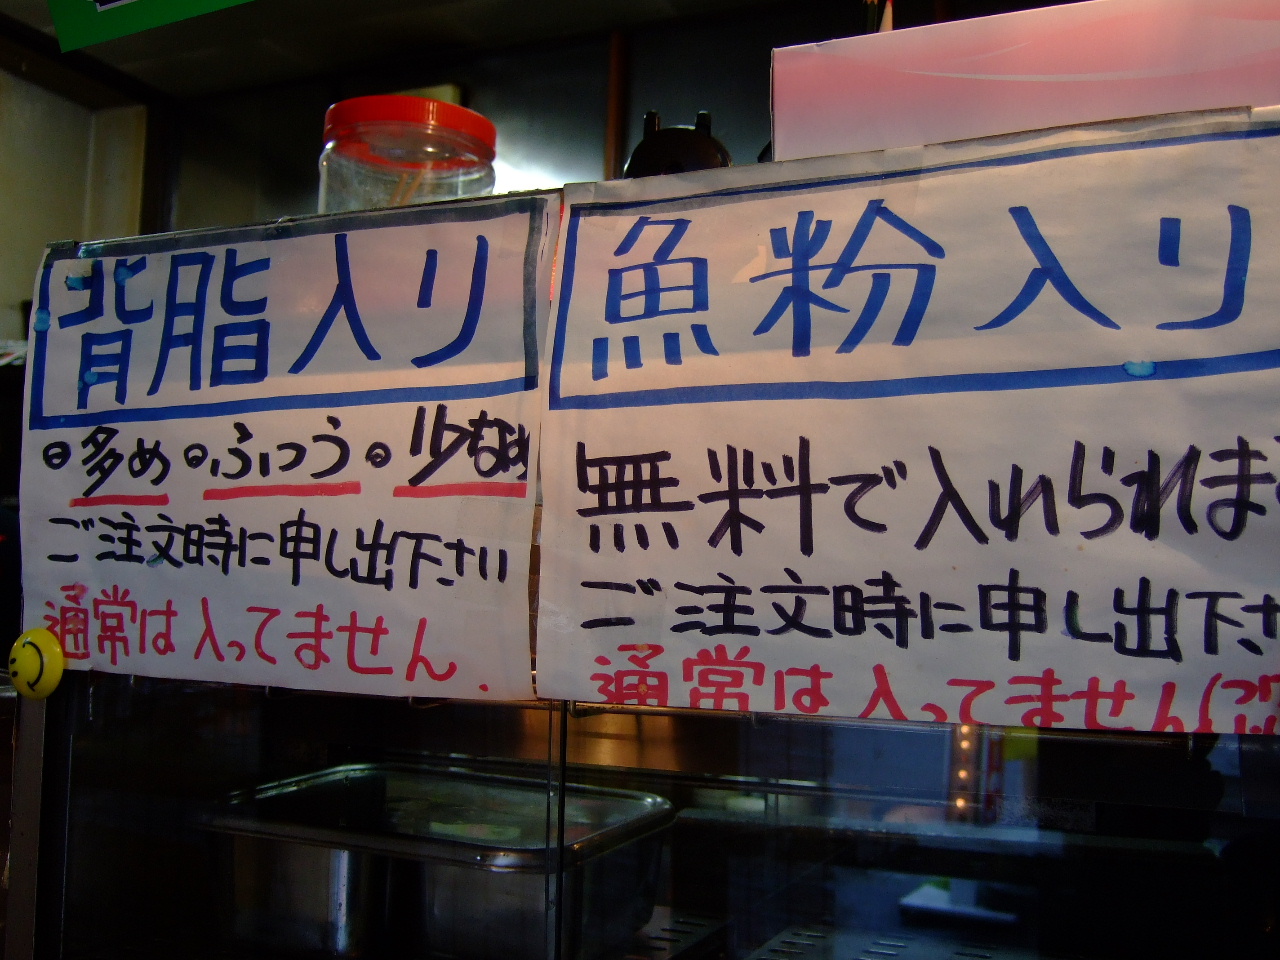 背脂入り
◉多め◉ふつう◉少なめ
ご注文時に申し出下さい
通常は入ってません.
魚粉入り
無料で入れられま
ご注文時に申し出下さ
通常は入ってません